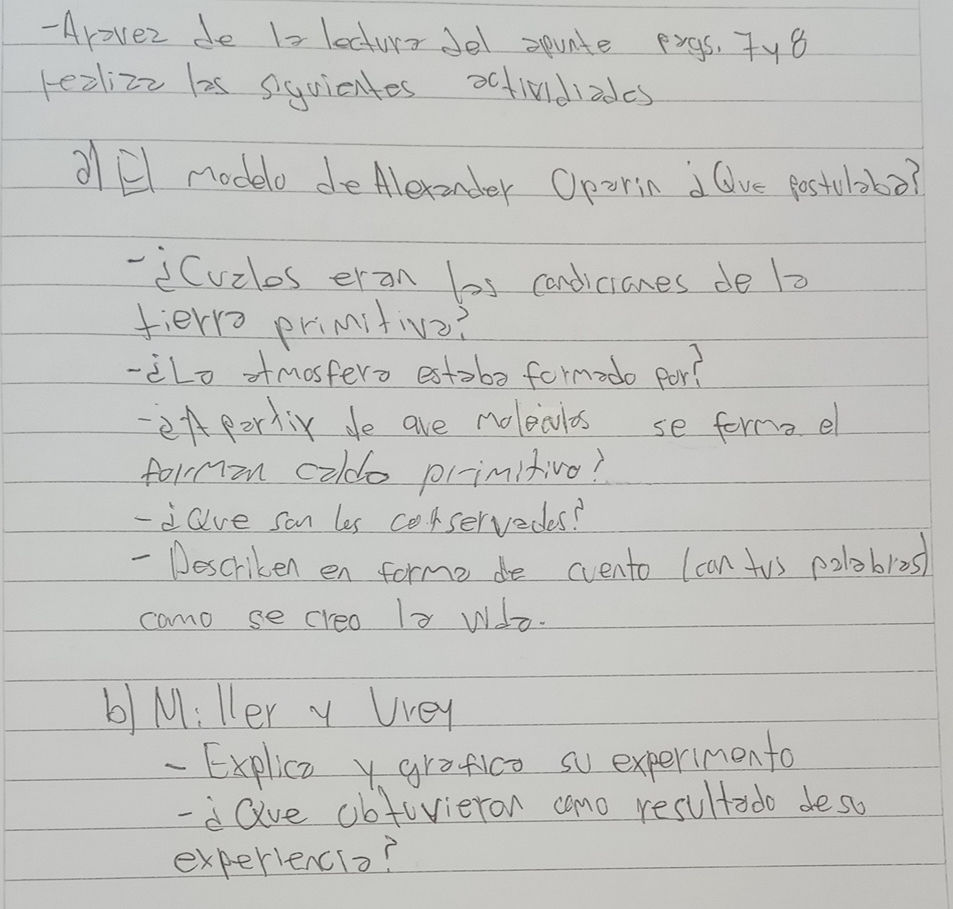 -Atravez de la lectura del apunte pags. 7 y 8
realiza las siguientes actividiades
a) El modelo de Alexander Oparin ¿Que postulaba?
-¿Cuales eran las condiciones de la
tierra primitiva?
-¿La atmosfera estaba formada por?
-¿A partir de que moleculas se forma el
forman caldo primitivo?
-¿Que son los coaservados?
- Describen en forma de cuento (con tus palabras)
como se creo la vida.
b) Miller y Urey
- Explica y grafica su experimento
-¿Que obtuvieron como resultado de su
experiencia?